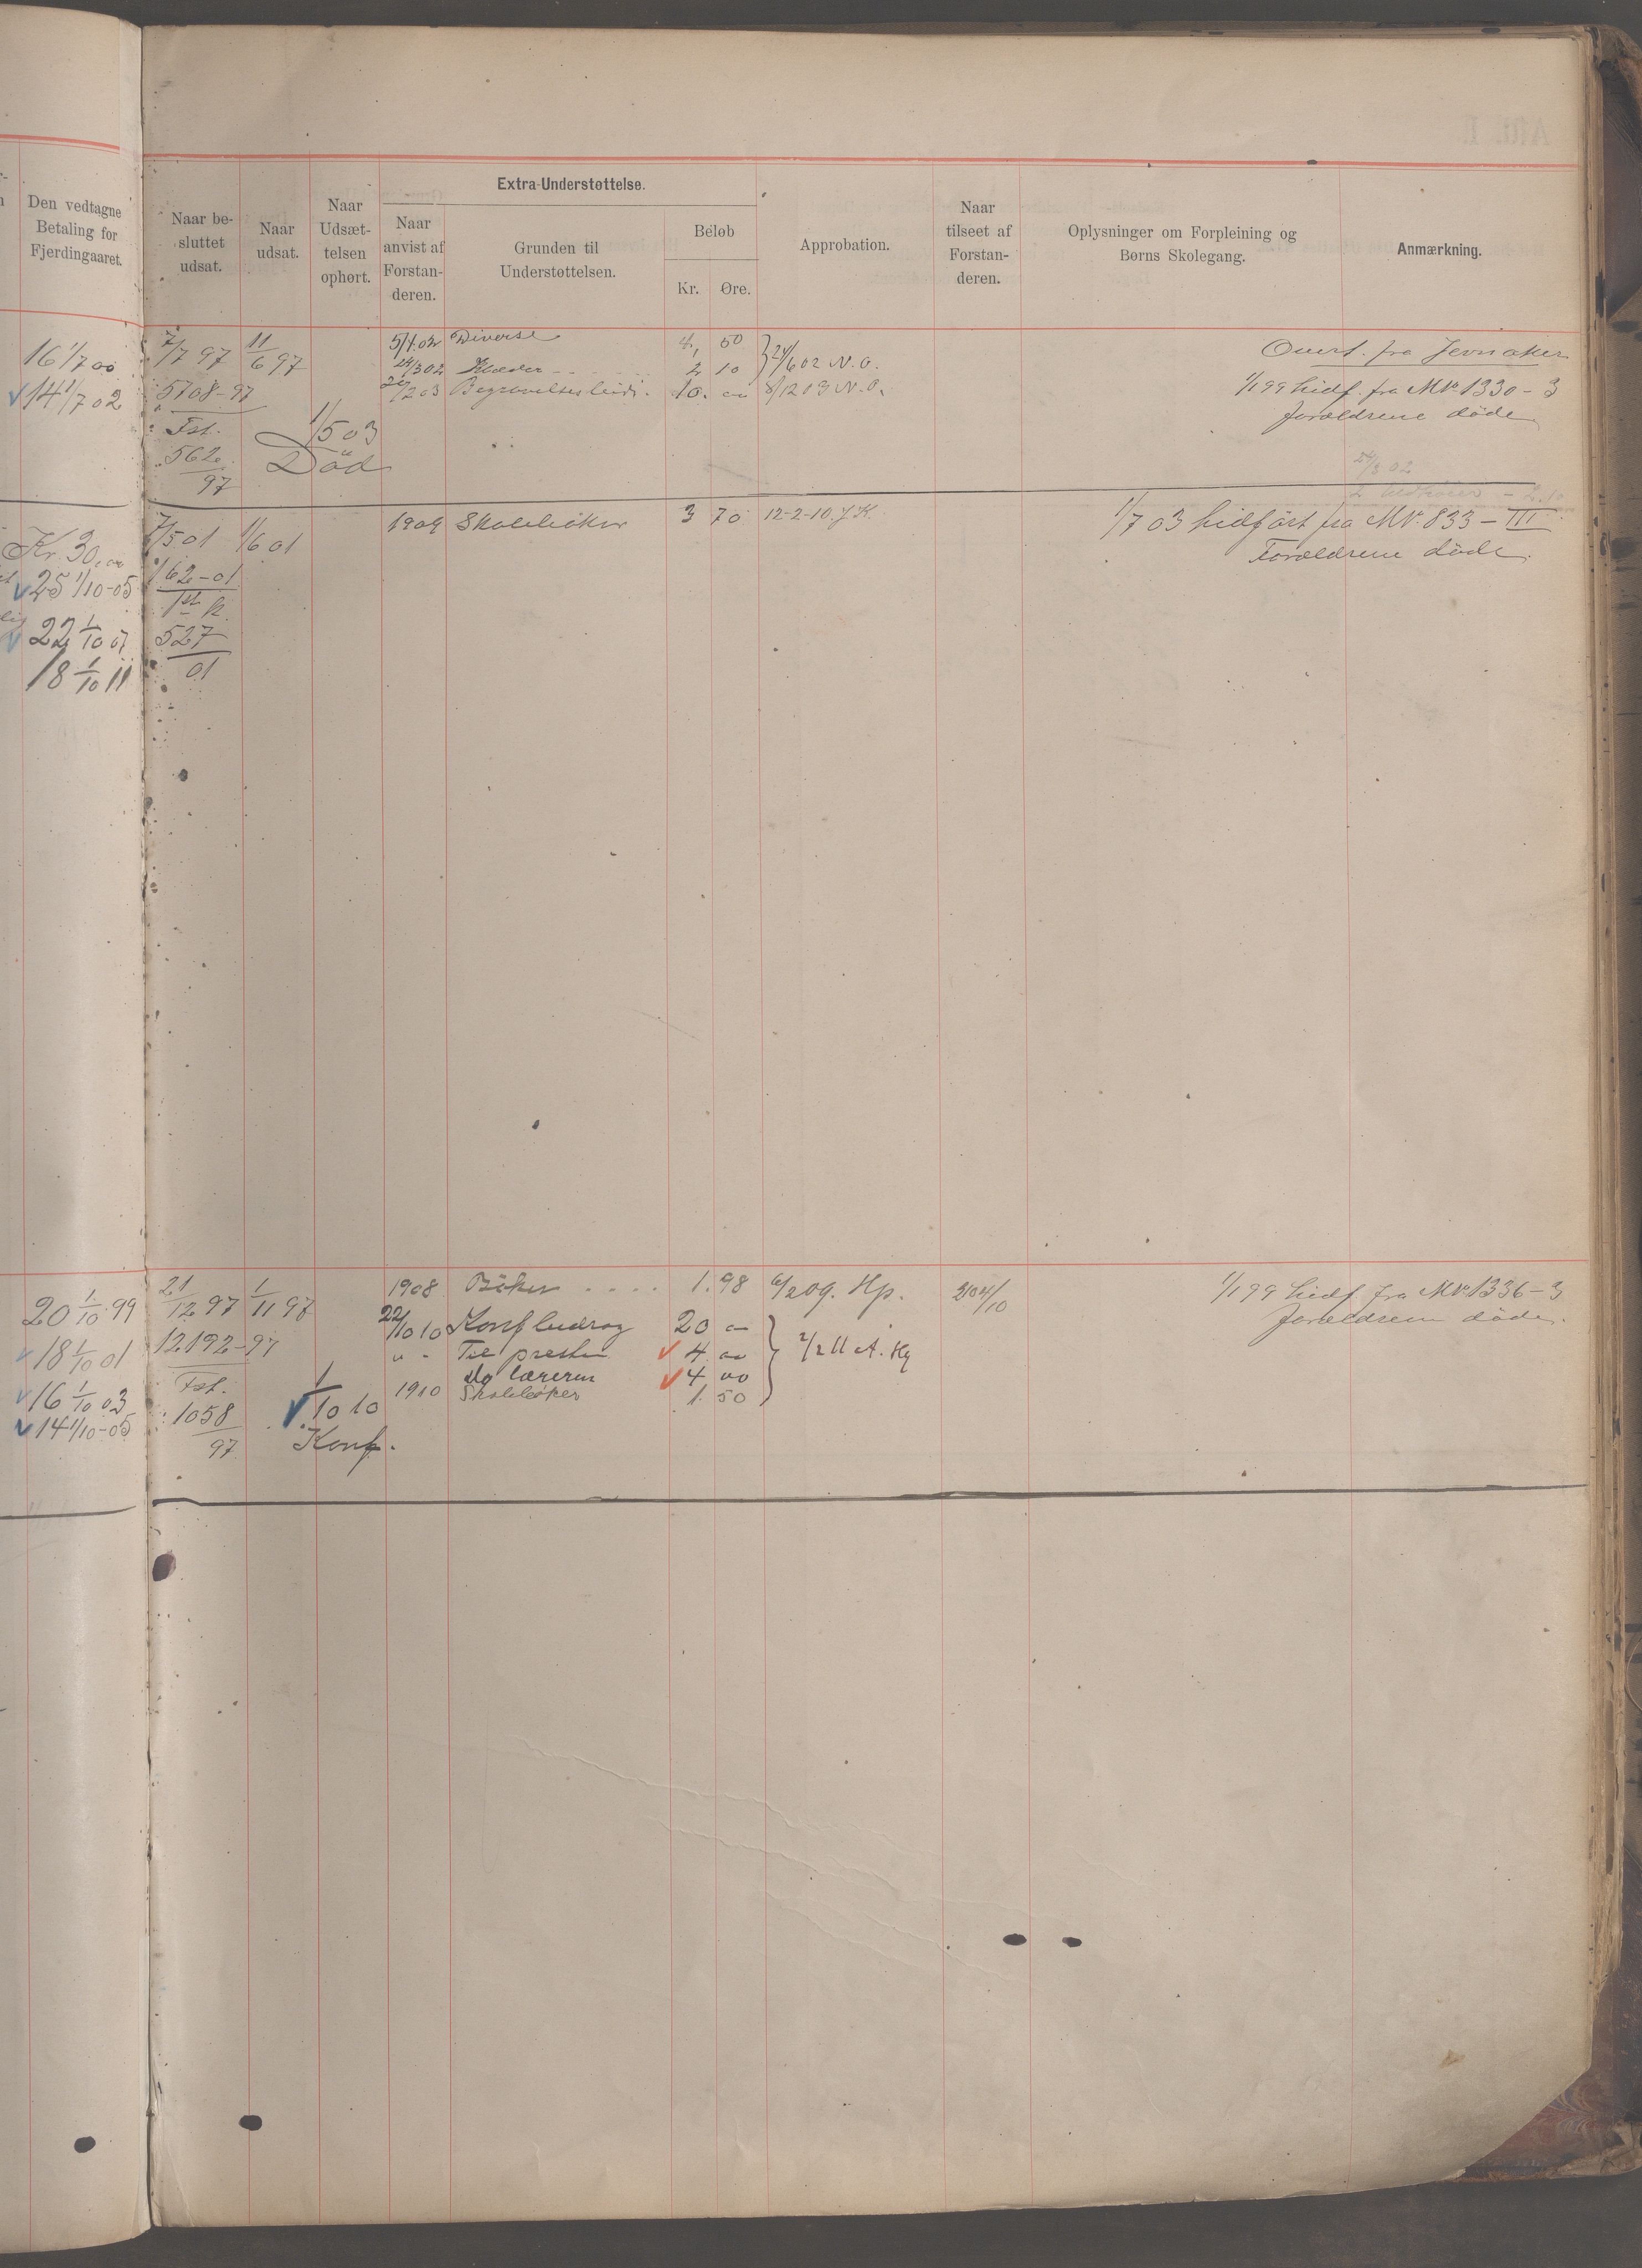 Den vedtagne
Betaling for
Fjerdingaaret.
Naar be-
sluttet
udsat.
Naar
udsat.
Naar
Udsæt-
telsen
ophørt.
Extra-Understøttelse.
Naar
anvist af
Forstan-
deren.
Grunden til
Understøttelsen.
Beløb
Kr. Øre.
Approbation.
Naar
tilseet af
Forstan-
deren.
Oplysninger om Forpleining og
Børns Skolegang.
Anmærkning.
16 1/7 00
14 1/7 02
7/7 97 11/6 97
5708-97
Fst.
562
97
1/5 03
Död
5/1.02 Diverse 4, 50
14/3 02 Klæder 2 10 24/6 02 N.O.
/2 03 10. 8/12 03 N.O.
Overf. fra Jevnaker
1/1 99 hidf. fra M.No 1330-3
forældrene döde
Kr. 30,
25 1/10-05
22 1/10 07
18 1/10 11
7/5 01 1/6 01
162-01
527
01
1909 Skoleböker 3 70 12-2-10. J.K.
1/7 03 hidfört fra M.No. 833-III
Forældrene döde.
20 1/10 99
18 1/10 01
16 1/10 03
14 1/10-05
21/12 97 1/11 97
12192-97
Fst.
1058
97
1/10 10
Konf.
1908 Böker .... 1.98 6/2 09. Hp.
22/10 10 Konfbidrag 20
" - Til presten 4 2/2 11 A. Hg
Do læreren 4 00
1910 Skoleböker 1. 50
1/1 99 hidf. fra M.No 1336-3
forældrene döde.